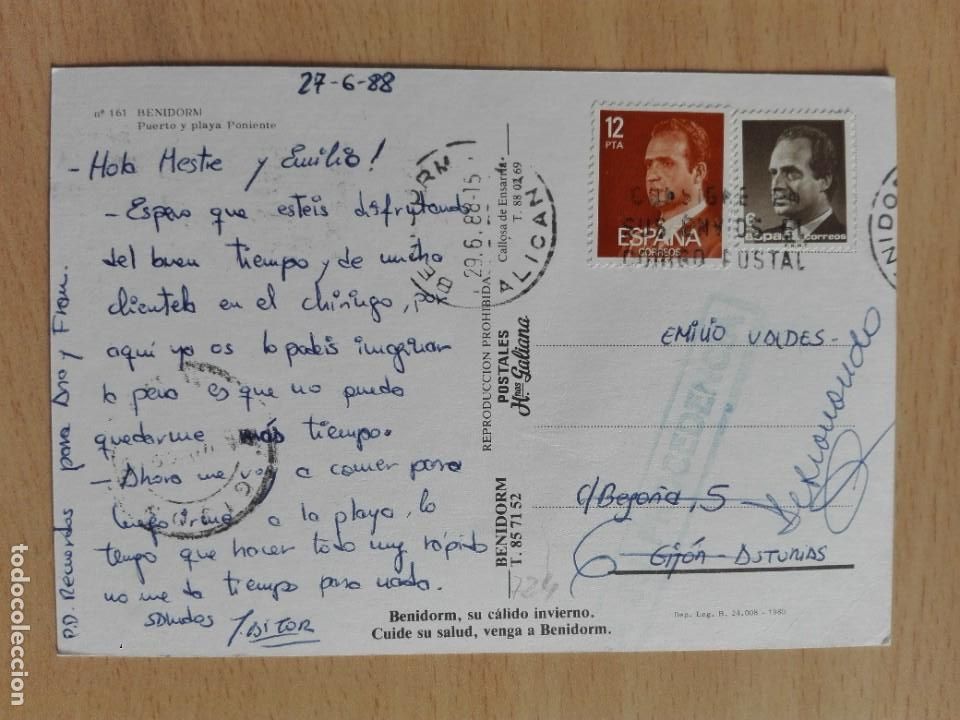 27-6-88
nº 161 BENIDORM
Puerto y playa Poniente
- Hola Mestre y Emilio!
- Espero que esteis disfrutando
del buen tiempo y de mucha
clientela en el chiringo, por
aquí ya os lo podeis imaginar
lo pero es que no puedo
quedarme más tiempo.
- Ahora me voy a comer para
luego irme a la playa, lo
tengo que hacer todo muy rápido
no me da tiempo para nada.
Saludos J. AITOR
P.D. Recuerdos para Ana y Fran.
Benidorm, su cálido invierno.
Cuide su salud, venga a Benidorm.
BENIDORM
T. 85 71 52
REPRODUCCION PROHIBIDA
POSTALES
Hnos Galiana
Callosa de Ensarriá
T. 88 02 69
29.6.88-15
ALICAN
12
PTA
ESPAÑA
CORREOS
6
España correos
CONSIGNE EN
SUS ENVIOS EL
CODIGO POSTAL
NIDOR
EMILIO VALDES-
C/ Begoña, 5
GIJÓN - ASTURIAS
724
Dep. Leg. B. 24.008 - 1980
todocoleccion